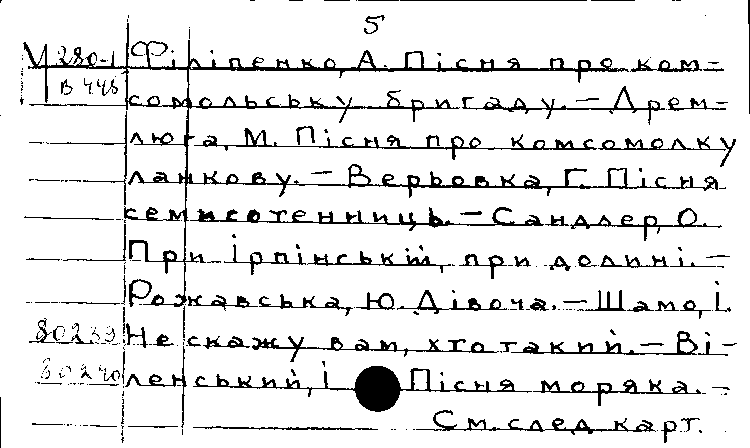 5
М 280-1 Філіпенко, А. Пісня про ком=
В 448 сомольську бригаду. – Дрем=
люга, М. Пісня про комсомолку
ланкову. – Верьовка, Г. Пісня
семисотенниць. – Сандлер, О.
При Ірпінській, при долині. –
Рожавська, Ю. Дівоча. – Шамо, І.
80239 Не скажу вам, хто такий. – Ві-
80240 ленський, І Пісня моряка. –
См. след карт.